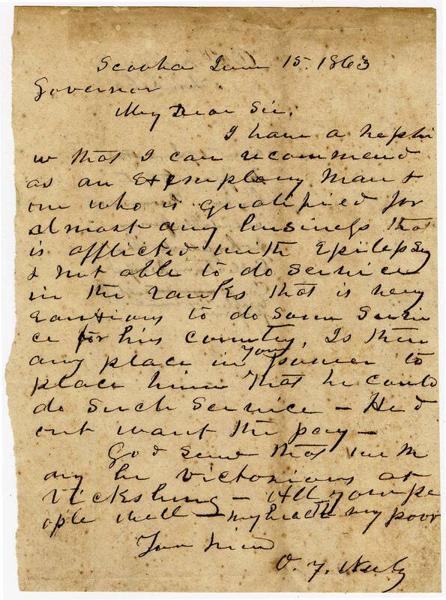 Scooba June 15. 1863
Governor
My Dear Sir,
I have a nephe
w that I can recommend
as an Exemplary man &
one who is qualified for
almost any business that
is afflicted with Epilepsy
& not able to do service
in the ranks that is very
anxious to do some Servi
ce for his country, Is there
any place in your power to
place him that he could
do such service – He d
ont want the pay –
God send that we m
ay be victorious at
Vicksburg – All your pe
ople well – my health very poor
Your friend
O. Y.